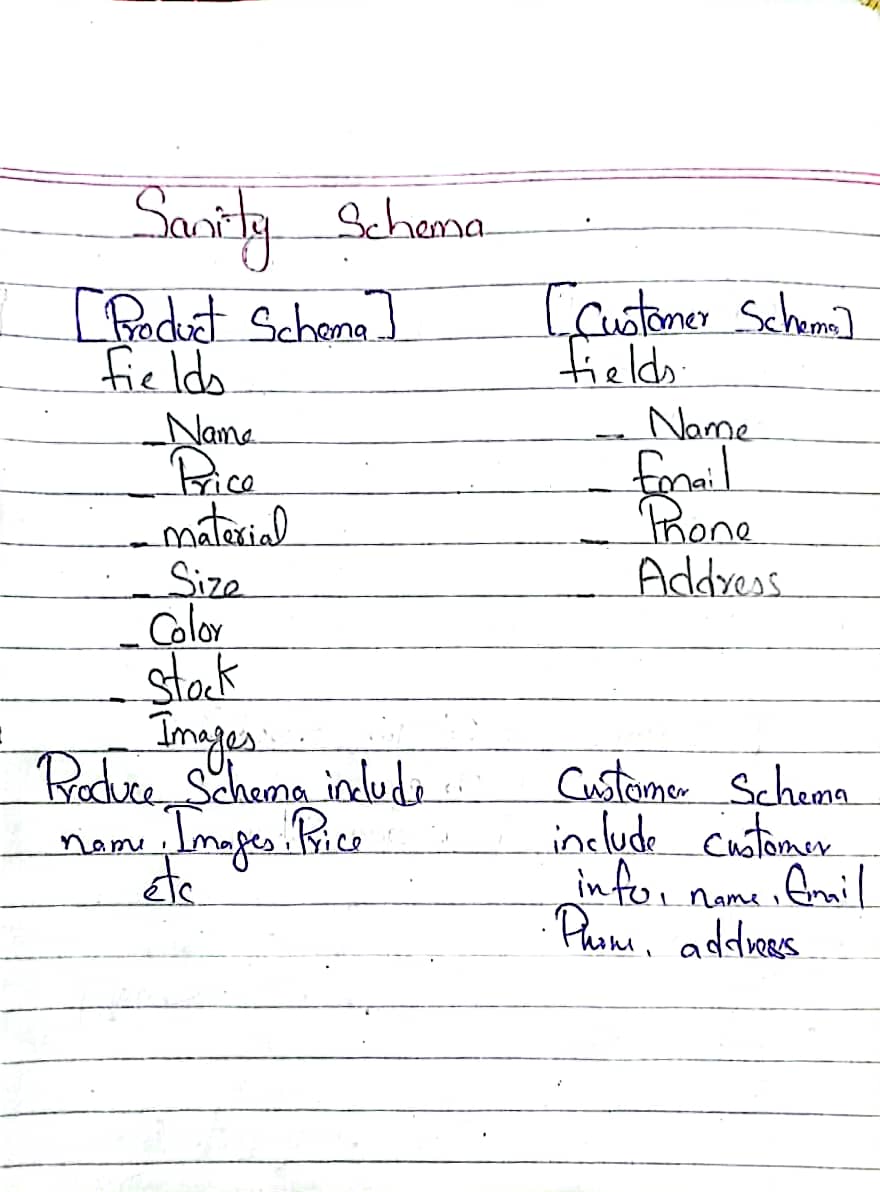 Sanity Schema
[Product Schema]
fields
- Name
- Price
- material
- Size
- Color
- Stock
- Images
Produce Schema include
name, Images, Price
etc
[Customer Schema]
fields
- Name
- Email
- Phone
- Address
Customer Schema
include customer
info, name, Email
Phone, address